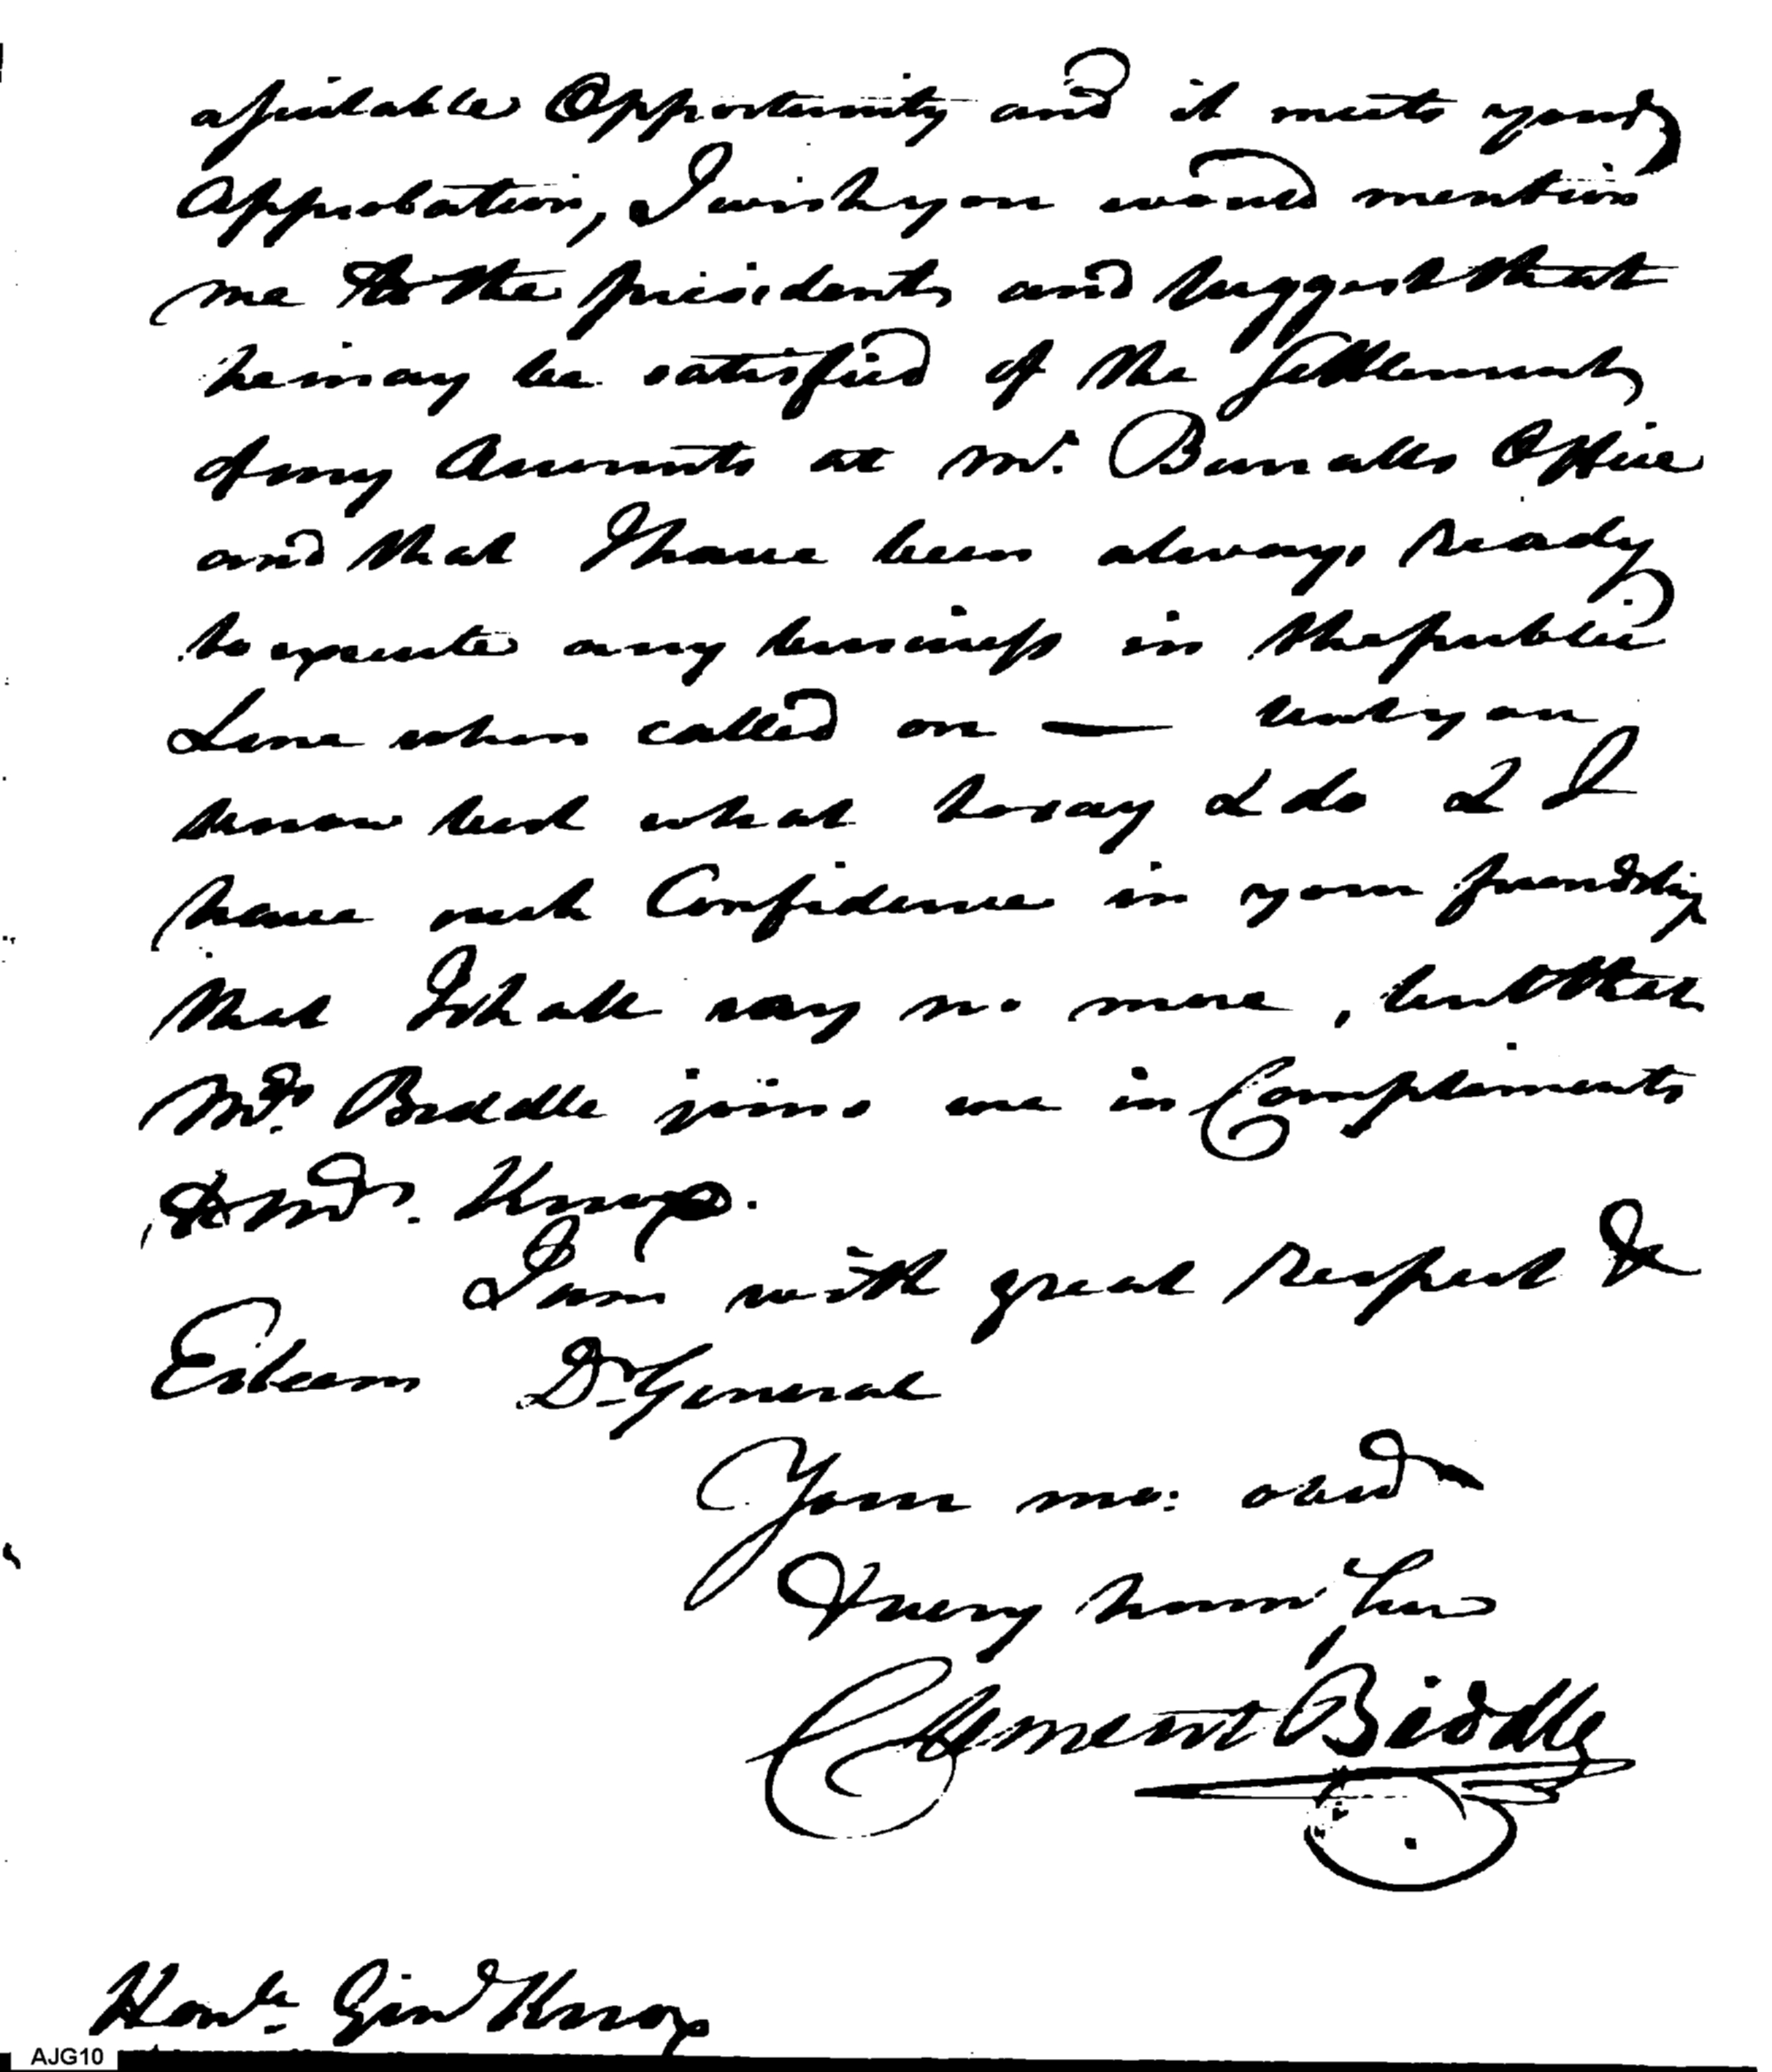 a suitable Opportunity and it meets your
Approbation, I wish you would mention
me to the president, and suggest that
he may be satisfied of the settlement
of my Accounts at Mr. Burralls Office
and that I have been always ready
to execute any business in the public
Line when called on — but you
know best what to say & do & I
have such Confidence in your friendship
that I shall say no more, but that
Mrs. Biddle joins me in Compliments
to Mrs. Knox.
I am with great Respect &
Esteem Dr General
Your mo: obedt
& very hum Ser
Clement Biddle
Honble. Genl Knox
AJG10